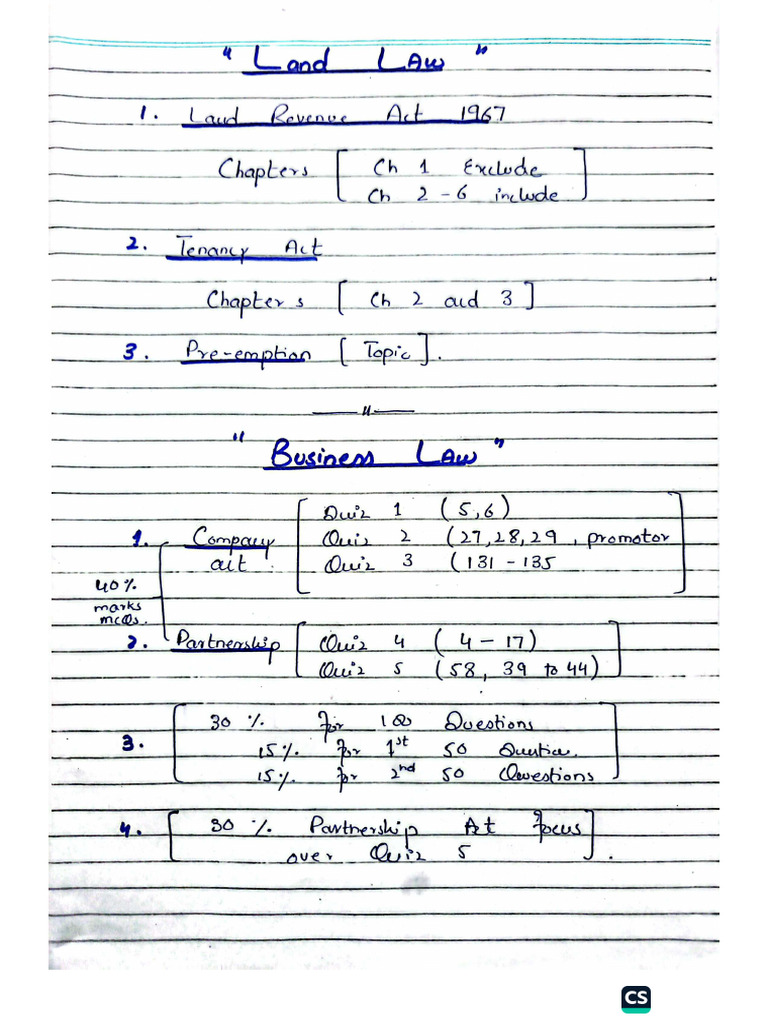 "Land Law"
1. Land Revenue Act 1967
Chapters [ Ch 1 Exclude
Ch 2-6 include ]
2. Tenancy Act
Chapters [ Ch 2 and 3 ]
3. Pre-emption [ Topic ].
—— " ——
"Business Law"
Quiz 1 (5,6)
1. Company Quiz 2 (27,28,29, promotor
act Quiz 3 (131 - 135
40%
marks
mcQs.
2. Partnership Quiz 4 (4 - 17)
Quiz 5 (58, 39 to 44)
30 % for 100 Questions
3. 15% for 1st 50 Question
15% for 2nd 50 Questions
4. [ 30 % Partnership Act focus
over Quiz 5 ].
CS